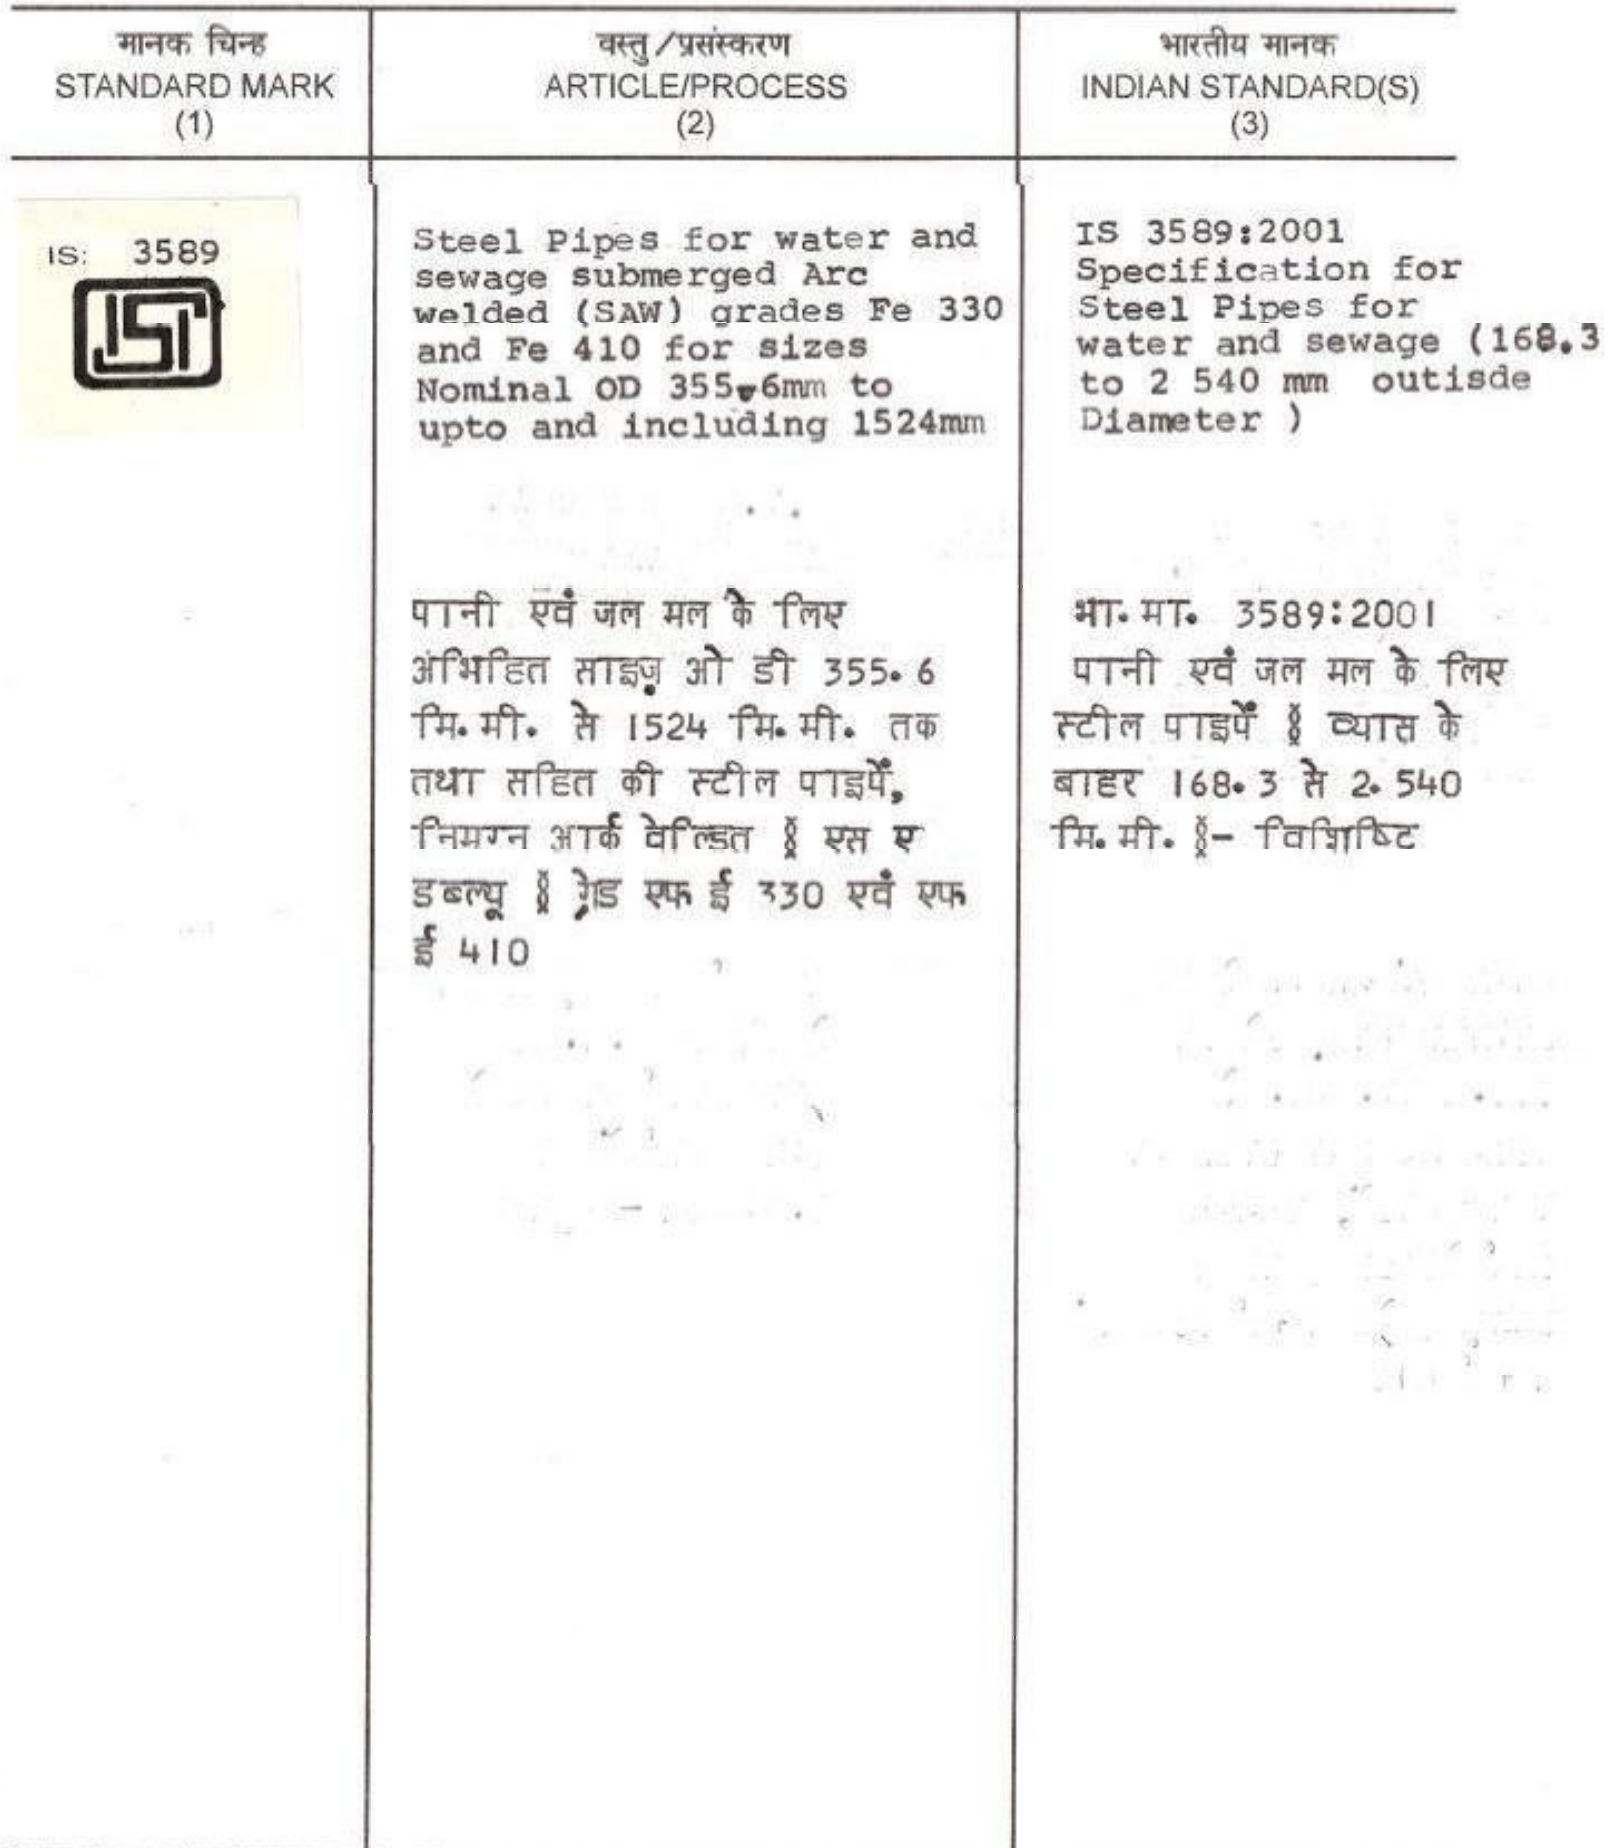 मानक चिन्ह
STANDARD MARK
(1)
वस्तु/प्रसंस्करण
ARTICLE/PROCESS
(2)
भारतीय मानक
INDIAN STANDARD(S)
(3)
IS: 3589
Steel Pipes for water and
sewage submerged Arc
welded (SAW) grades Fe 330
and Fe 410 for sizes
Nominal OD 355.6mm to
upto and including 1524mm
IS 3589:2001
Specification for
Steel Pipes for
water and sewage (168.3
to 2 540 mm outisde
Diameter )
पानी एवं जल मल के लिए
अंभिहित साइज़ ओ डी 355.6
मि.मी. से 1524 मि.मी. तक
तथा सहित की स्टील पाइपें,
निमग्न आर्क वेल्डित § एस ए
डब्ल्यू § ग्रेड एफ ई 330 एवं एफ
ई 410
भा.मा. 3589:2001
पानी एवं जल मल के लिए
स्टील पाइपें § व्यास के
बाहर 168.3 से 2.540
मि.मी. §- विशिष्टि